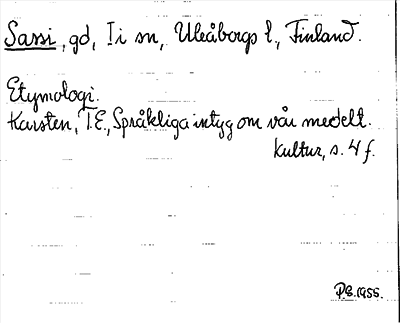 Sassi, gd, Ii sn, Uleåborgs l., Finland.
Etymologi.
Karsten, T.E., Språkliga intyg om vår medelt.
kultur, s. 4 f.
P.E. 1955.